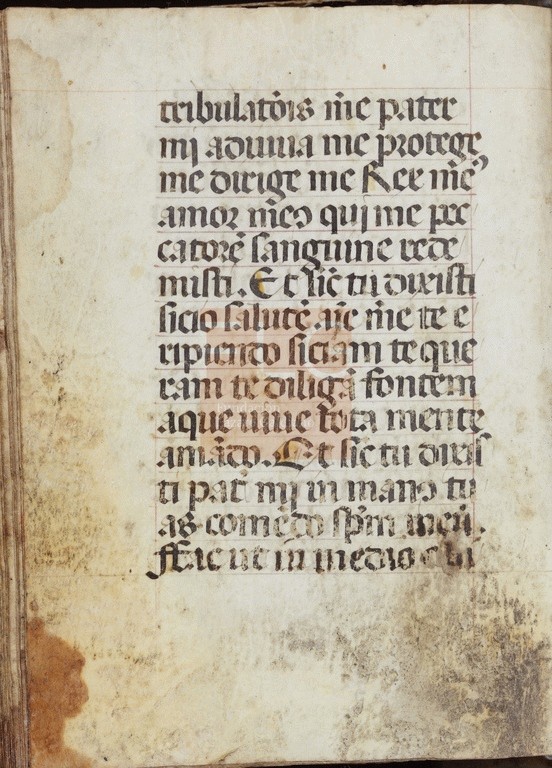 tribulatōis m̄e pater
mj adiuua me protege
me dirige me Rex me᷒
amor me᷒ qui me pec
catorē sanguine rede
misti. Et sic̄ tu dixisti
sicio salutē aīe m̄e te e
ripiendo siciam te que
ram te diligā fontem
aque uiue tota mente
amādo. Et sic̄ tu dixis
ti pat̄ mj in man᷒ tu
as comēdo sp̄m meū.
ffac ut in medio